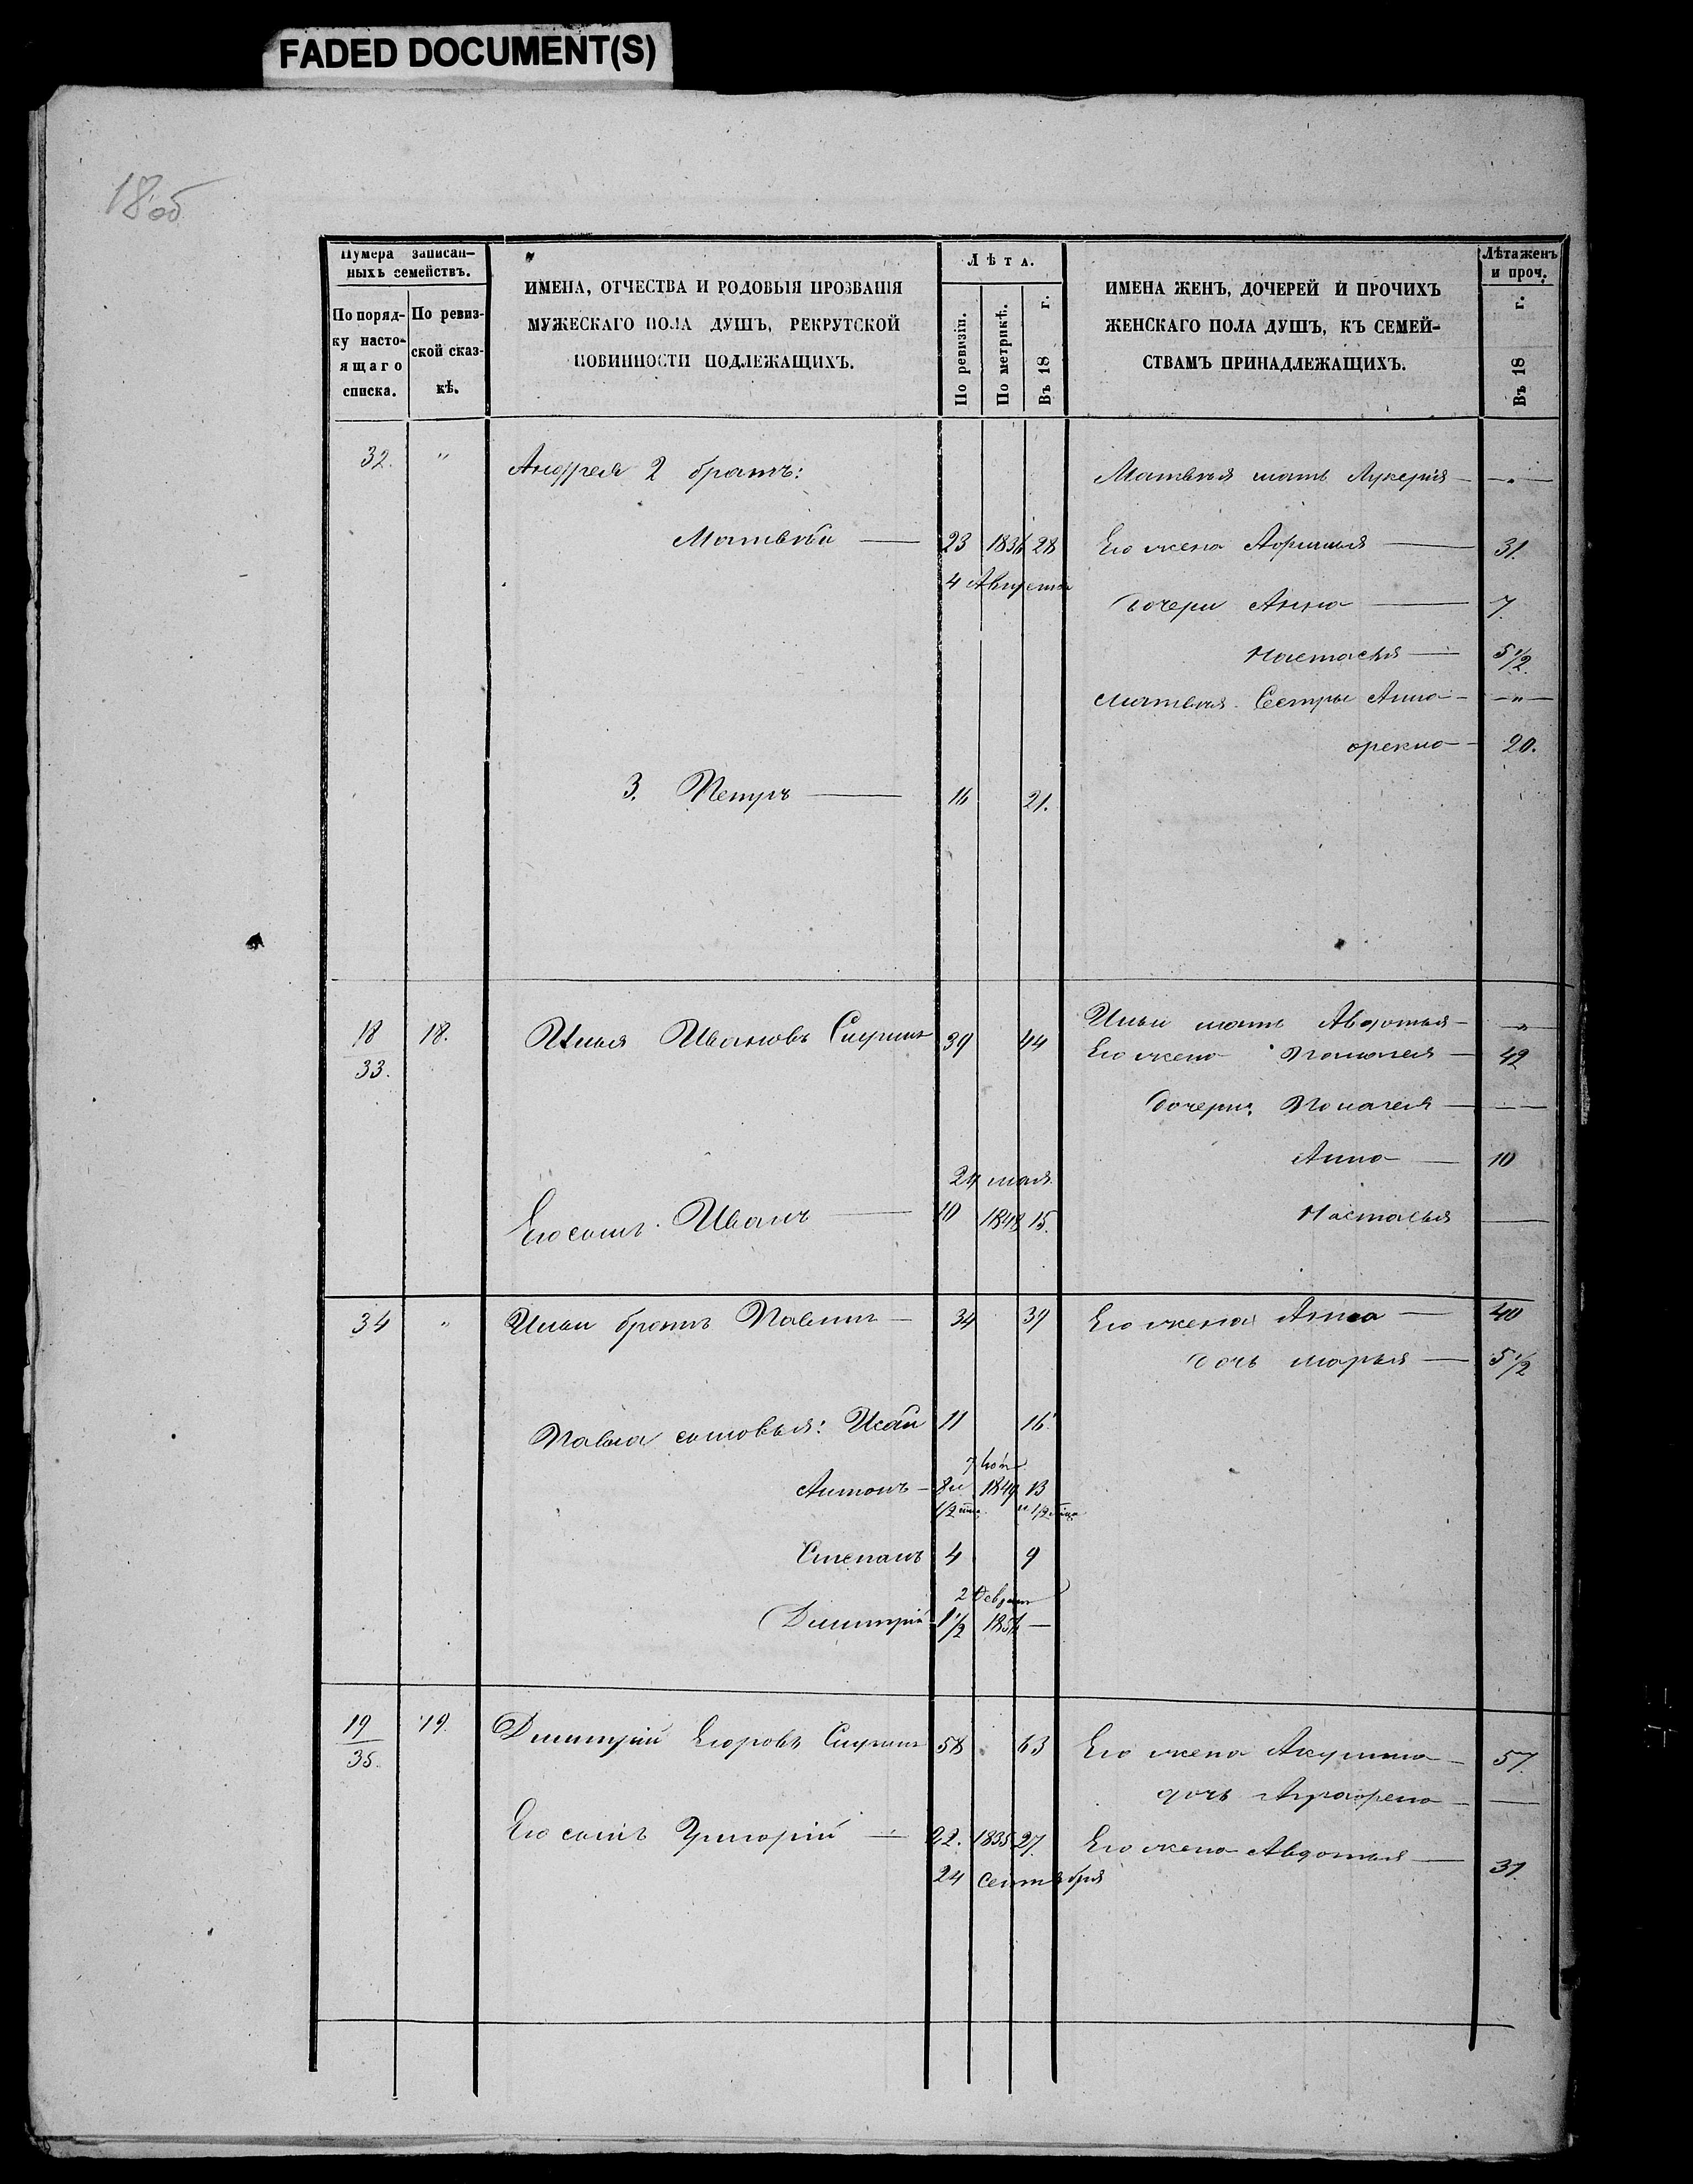 FADED DOCUMENT(S)
18 об
Нумера записан-
ныхъ семействъ.
По поряд-
ку насто-
ящаго
списка.
По ревиз-
ской сказ-
кѣ.
ИМЕНА, ОТЧЕСТВА И РОДОВЫЯ ПРОЗВАНІЯ
МУЖЕСКАГО ПОЛА ДУШЪ, РЕКРУТСКОЙ
ПОВИННОСТИ ПОДЛЕЖАЩИХЪ.
ЛѢТА.
По ревизіи.
По метрикѣ.
Въ 18 г.
ИМЕНА ЖЕНЪ, ДОЧЕРЕЙ И ПРОЧИХЪ
ЖЕНСКАГО ПОЛА ДУШЪ, КЪ СЕМЕЙ-
СТВАМЪ ПРИНАДЛЕЖАЩИХЪ.
Лѣта женъ
и проч.
Въ 18 г.
32. " Андрея 2 братъ: Матвѣя мать Лукерія — " —
Матвѣй — 23 1836 28 Его жена Афимья — 31.
4 Августа
дочери Анна — 7.
Настасья — 5 1/2
Матвѣя Сестры Анна — " —
20.
3. Петръ — 16 21.
18 18. Илья Ивановъ 39 44 Ильи мать Авдотья — " —
33. Его жена Палагея — 42
дочери: Палагея — —
Анна — 10
24 мая
Его сынъ Иванъ — 10 1848 15. Настасья —
34 " Ильи братъ Павелъ — 34 39 Его жена Анна — 40
дочь Марья — 5 1/2
Павла сыновья: Исай 11 16
7
Антонъ — 8 и 1849 13
1/2 и 1/2
Степанъ 4 9
2 Февраля
Дмитрій 1 1/2 —
19 19. Дмитрій Егоровъ 58 63 Его жена Акулина — 57.
35. дочь Аграфена — —
Его сынъ Григорій — 22. 1835 27. Его жена Авдотья —
24 Сентября